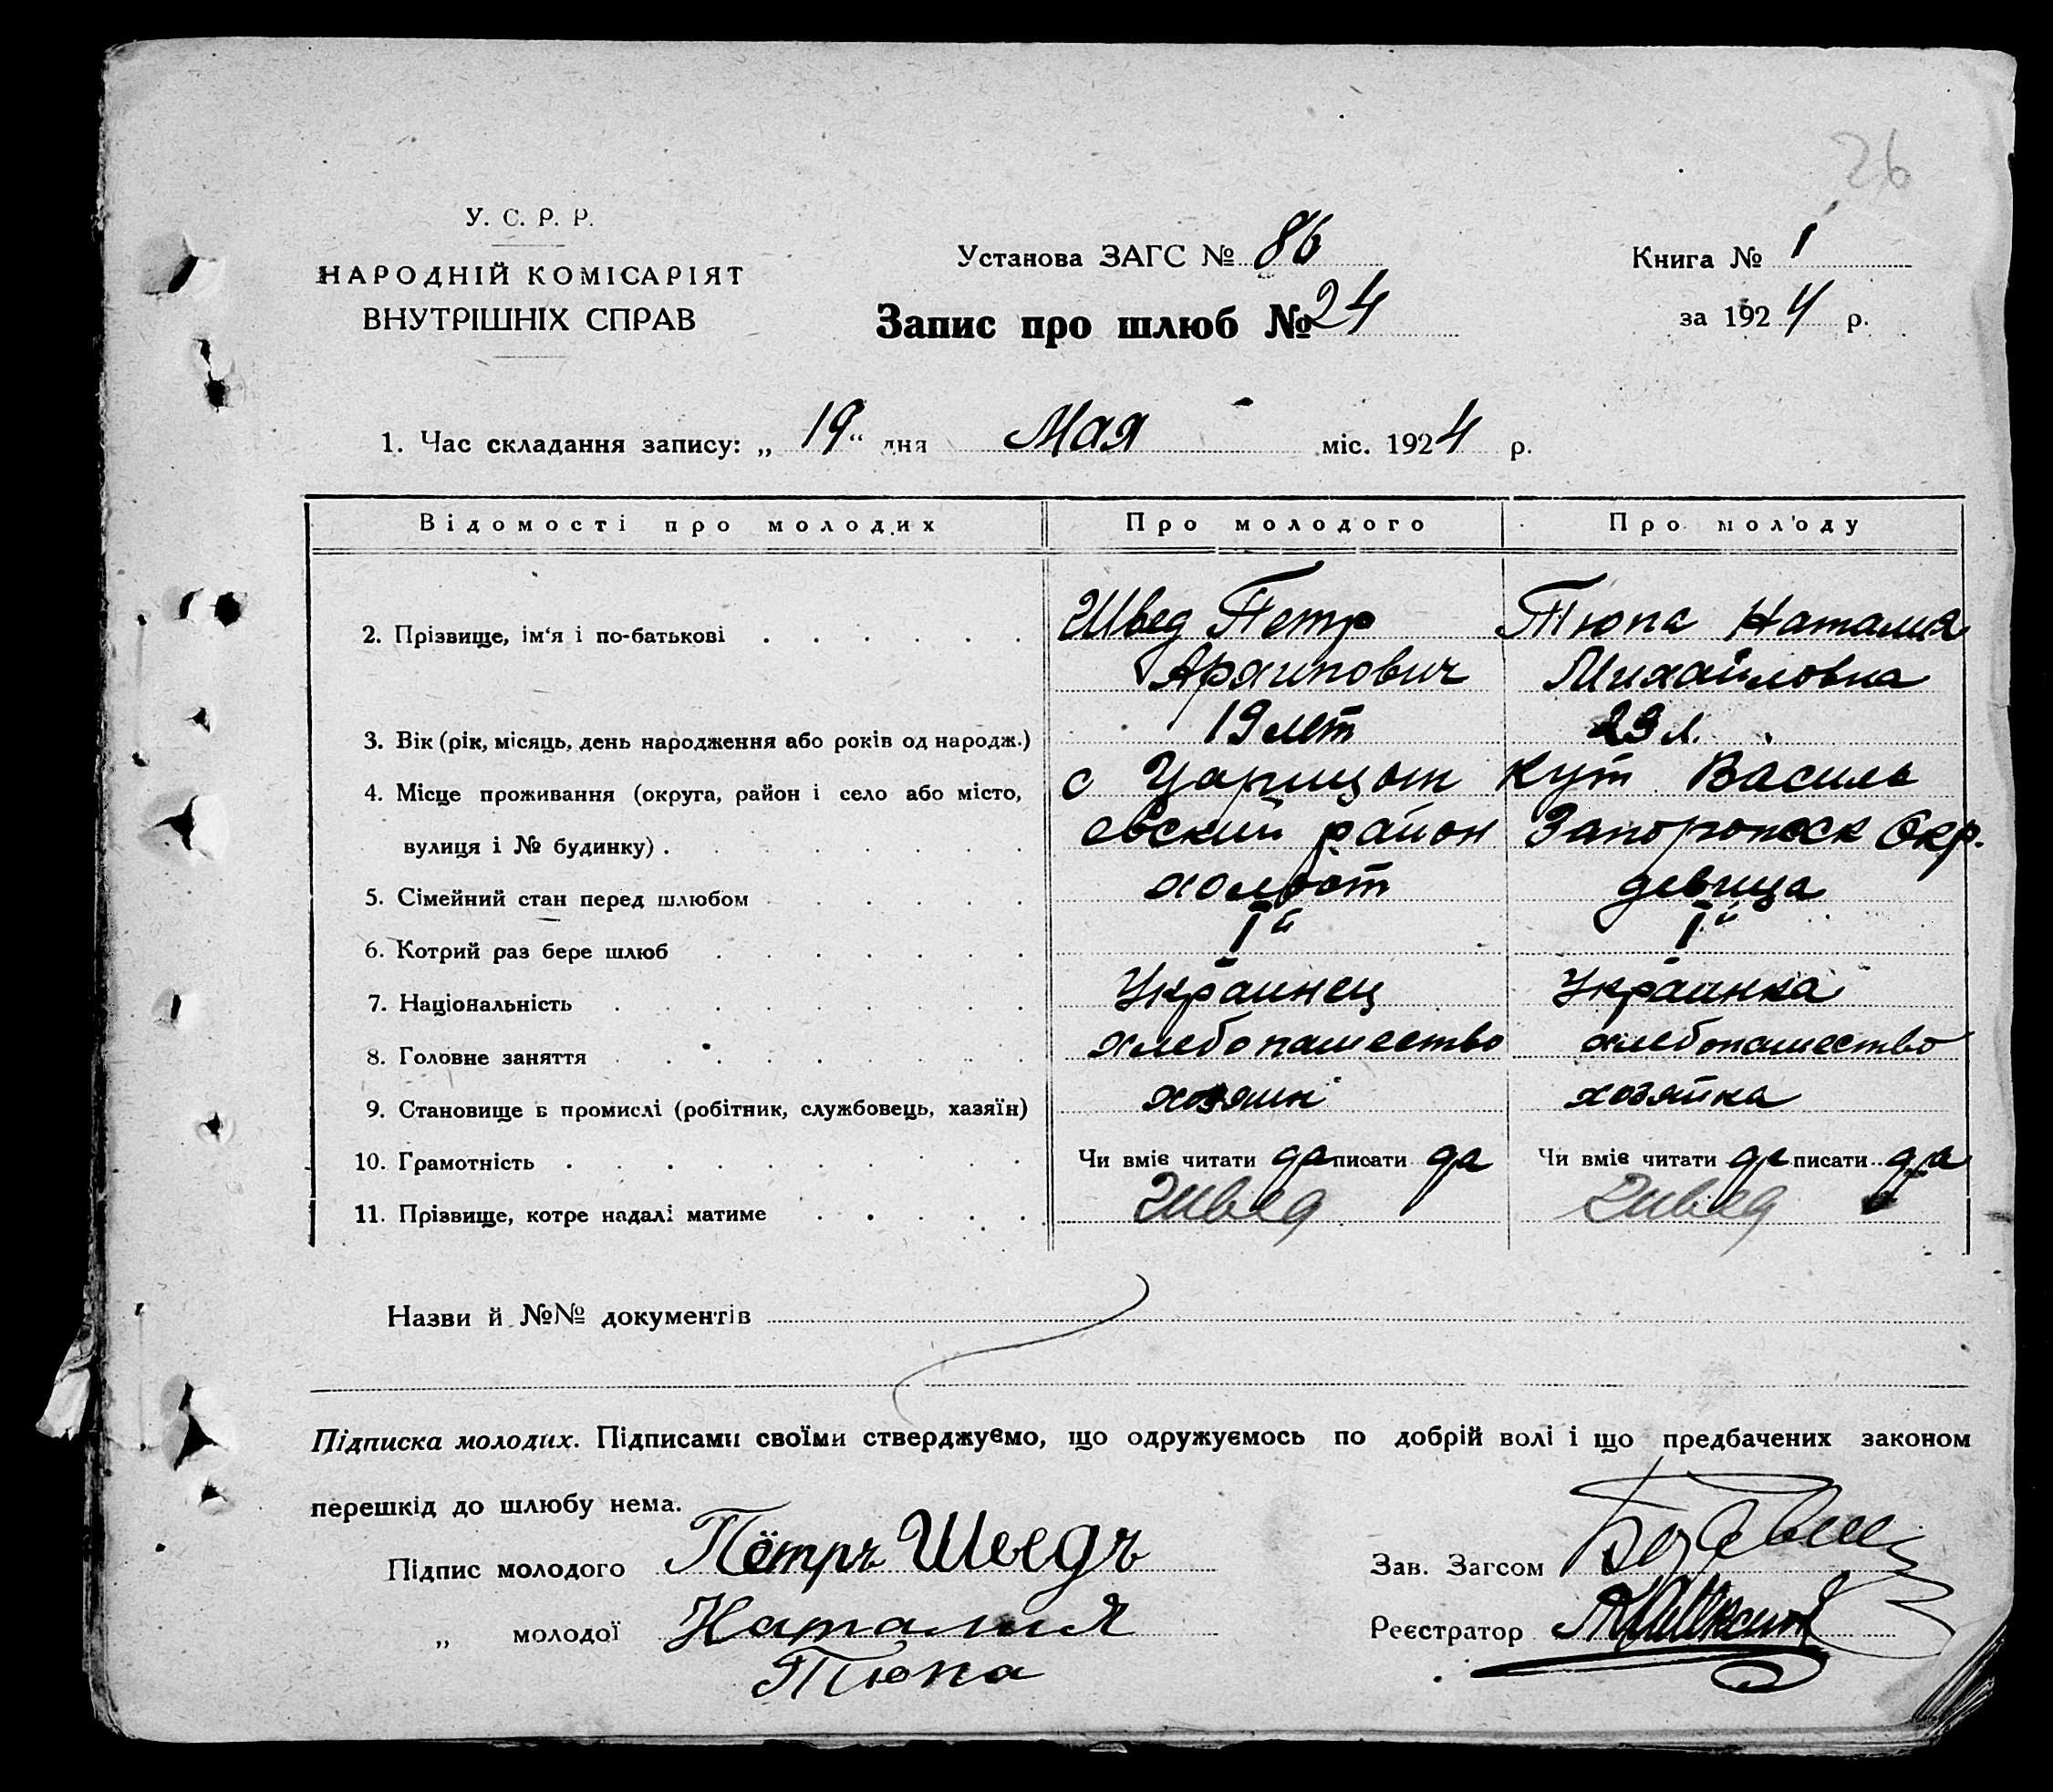 26
У. С. Р. Р.
НАРОДНІЙ КОМІСАРІЯТ
ВНУТРІШНІХ СПРАВ
Установа ЗАГС № 86
Запис про шлюб № 24
Книга № 1
за 1924 р.
1. Час складання запису: „19“ дня Мая міс. 1924 р.
Відомості про молодих Про молодого Про молоду
2. Прізвище, ім'я і по-батькові Швед Петр Тюпа Наталия
Архипович Михайловна
3. Вік (рік, місяць, день народження або років од народж.) 19 лет 23 л.
4. Місце проживання (округа, район і село або місто, с Царицын Кут Василь
вулиця і № будинку) евский район Запорожск Окр.
5. Сімейний стан перед шлюбом холост девица
6. Котрий раз бере шлюб Iй Iй
7. Національність Украинец Украинка
8. Головне заняття хлебопашество хлебопашество
9. Становище в промислі (робітник, службовець, хазяїн) хозяин хозяйка
10. Грамотність Чи вміє читати да писати да Чи вміє читати да писати да
11. Прізвище, котре надалі матиме Швед Швед
Назви й №№ документів
Підписка молодих. Підписами своїми стверджуємо, що одружуємось по добрій волі і що предбачених законом
перешкід до шлюбу нема.
Підпис молодого Пётръ Шведъ
Зав. Загсом
„ молодої Наталия
Тюпа
Реєстратор